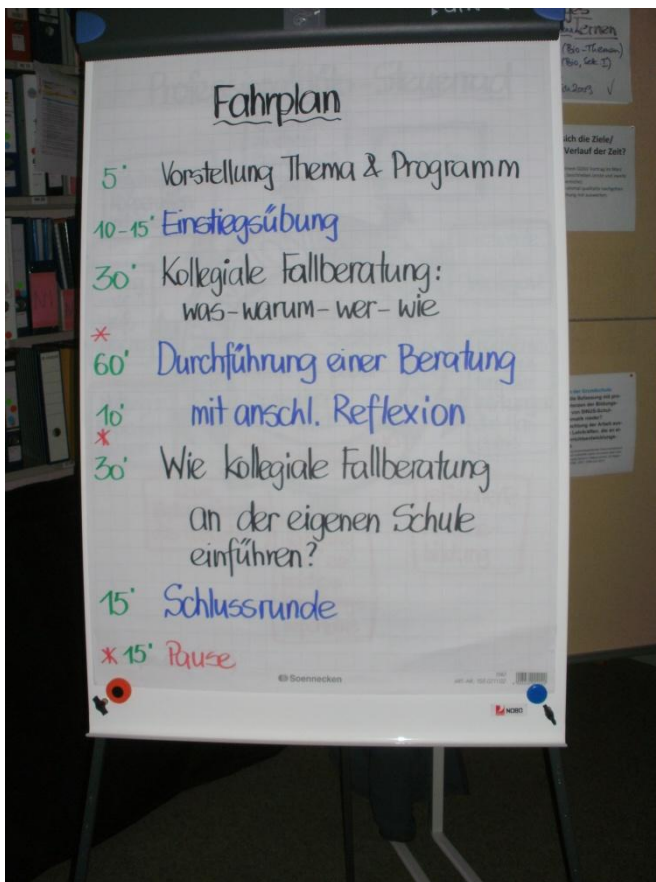 Fahrplan
5' Vorstellung Thema & Programm
10-15' Einstiegsübung
30' Kollegiale Fallberatung:
was-warum-wer-wie
*
60' Durchführung einer Beratung
10' mit anschl. Reflexion
*
30' Wie kollegiale Fallberatung
an der eigenen Schule
einführen?
15' Schlussrunde
* 15' Pause
Soennecken
NOBO
lernen
(Bio-Themen)
(Bio, Sek. I)
sich die Ziele/
Verlauf der Zeit?